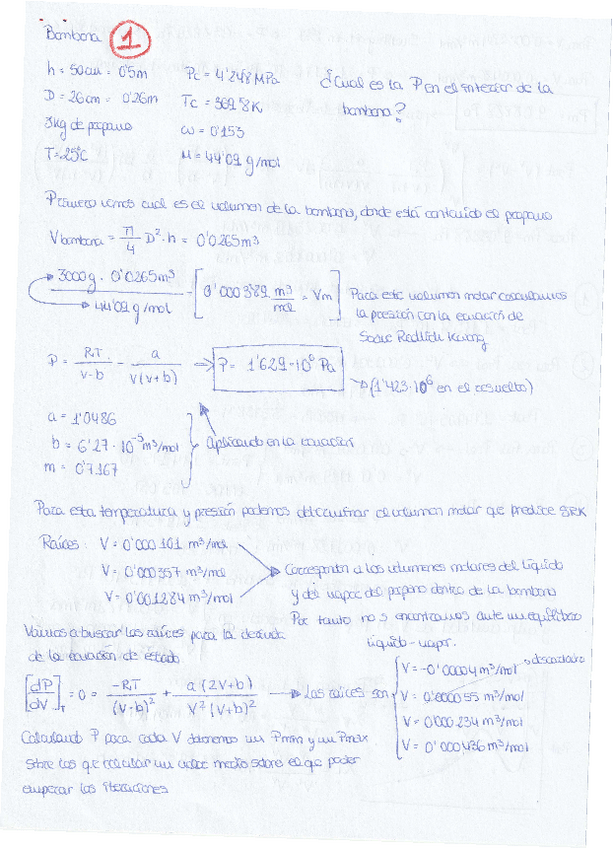 Bombona 1
h = 50cm = 0'5m Pc = 4'248 MPa ¿Cual es la P en el interior de la
D = 26cm = 0'26m Tc = 369'8K bombona?
3kg de propano ω = 0'153
T = 25°C M = 44'09 g/mol
Primero vemos cual es el volumen de la bombona, donde está contenido el propano
V bombona = π/4 D² · h = 0'0265 m³
3000g · 0'0265m³ / 44'09 g/mol [0'000389 m³/mol = Vm] Para este volumen molar calculamos
la presión con la ecuación de
Soave Redlich Kwong
P = RT/(v-b) - a/(v(v+b)) ⟹ P = 1'629·10⁶ Pa
→ (1'423·10⁶ en el resuelto)
a = 1'0486
b = 6'27·10⁻⁵ m³/mol Aplicando en la ecuación
m = 0'7167
Para esta temperatura y presión podemos determinar el volumen molar que predice SRK
Raíces: V = 0'000101 m³/mol
V = 0'000357 m³/mol Corresponden a los volumenes molares del líquido
V = 0'001284 m³/mol y del vapor del propano dentro de la bombona
Por tanto nos encontramos ante un equilibrio
líquido-vapor.
Vamos a buscar las raíces para la derivada
de la ecuación de estado
[dP/dV]T = 0 = -RT/(v-b)² + a(2V+b)/(V²(V+b)²) → Las raíces son
V = -0'00004 m³/mol → descartado
V = 0'000055 m³/mol
V = 0'000234 m³/mol
V = 0'000436 m³/mol
Calculando P para cada V obtenemos un Pmin y un Pmax
sobre los que calcular un valor medio sobre el que poder
empezar las iteraciones